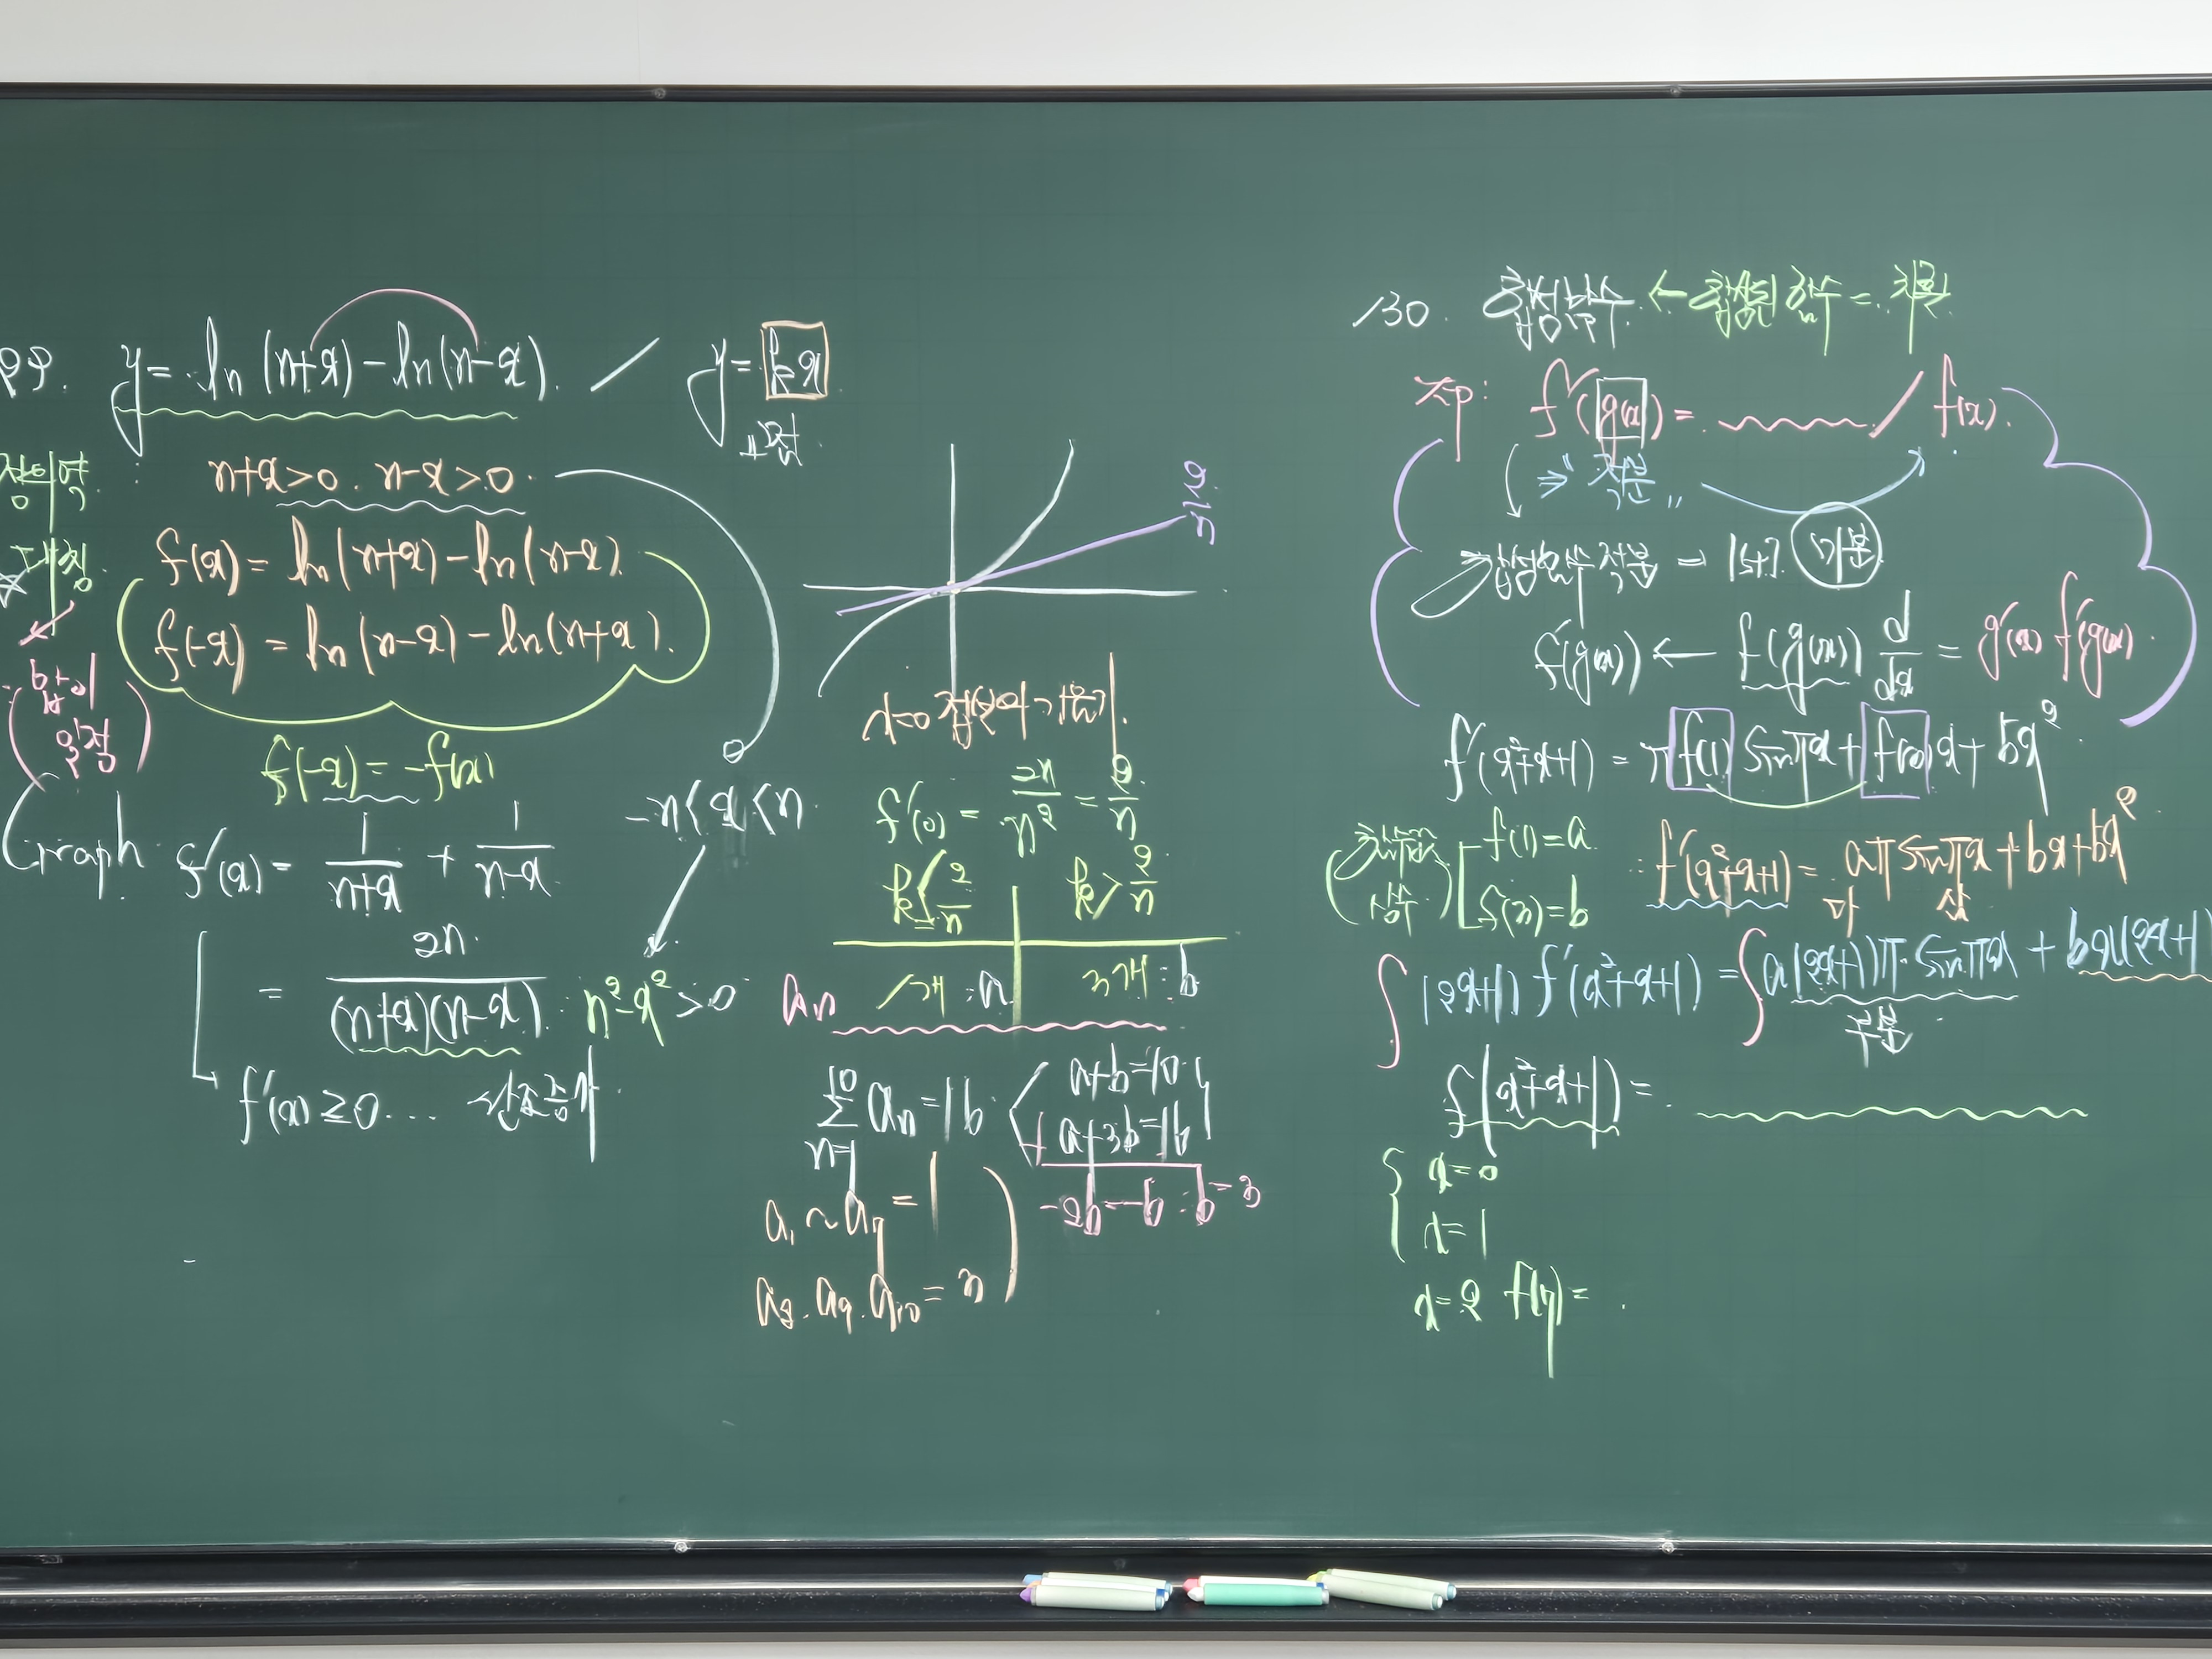 29. y = ln(n+x) - ln(n-x). / y = kx
n+x>0. n-x>0.
정의역 :
f(x) = ln(n+x) - ln(n-x).
대칭
f(-x) = ln(n-x) - ln(n+x).
f(-x) = -f(x)
-n<x<n.
Graph. f'(x) = 1/(n+x) + 1/(n-x)
= 2n/((n+x)(n-x)). : n²-x²>0
f'(x) ≥ 0 ... 단조증가.
2/n
x=0 접선의 기울기.
f'(0) = 2n/n² = 2/n
k≤2/n k>2/n
an 1개 : a 3개 : b
10
∑ an = 16
n=1
a+b=10
a+3b=16
-2b=-6 : b=3
a₁ ~ a₇ = 1
a₈. a₉. a₁₀ = 3
130. 합성함수 ← 합성된 함수 = 치환
f'(g(x)) = / f(x).
⇒ "적분"
합성함수 적분 = 1st. 미분
f'(g(x)) ← f(g(x)) d/dx = g'(x) f'(g(x)).
f'(x²+x+1) = πf(1) sinπx + f(3)x + 5x².
상수
f(1)=a.
f(3)=b
: f'(x²+x+1) = aπ sinπx + bx + 5x²
∫(2x+1) f'(x²+x+1) = ∫a(2x+1)π sinπx + bx(2x+1)
부분
f(x²+x+1) =
x=0
x=1
x=2 f(7) =